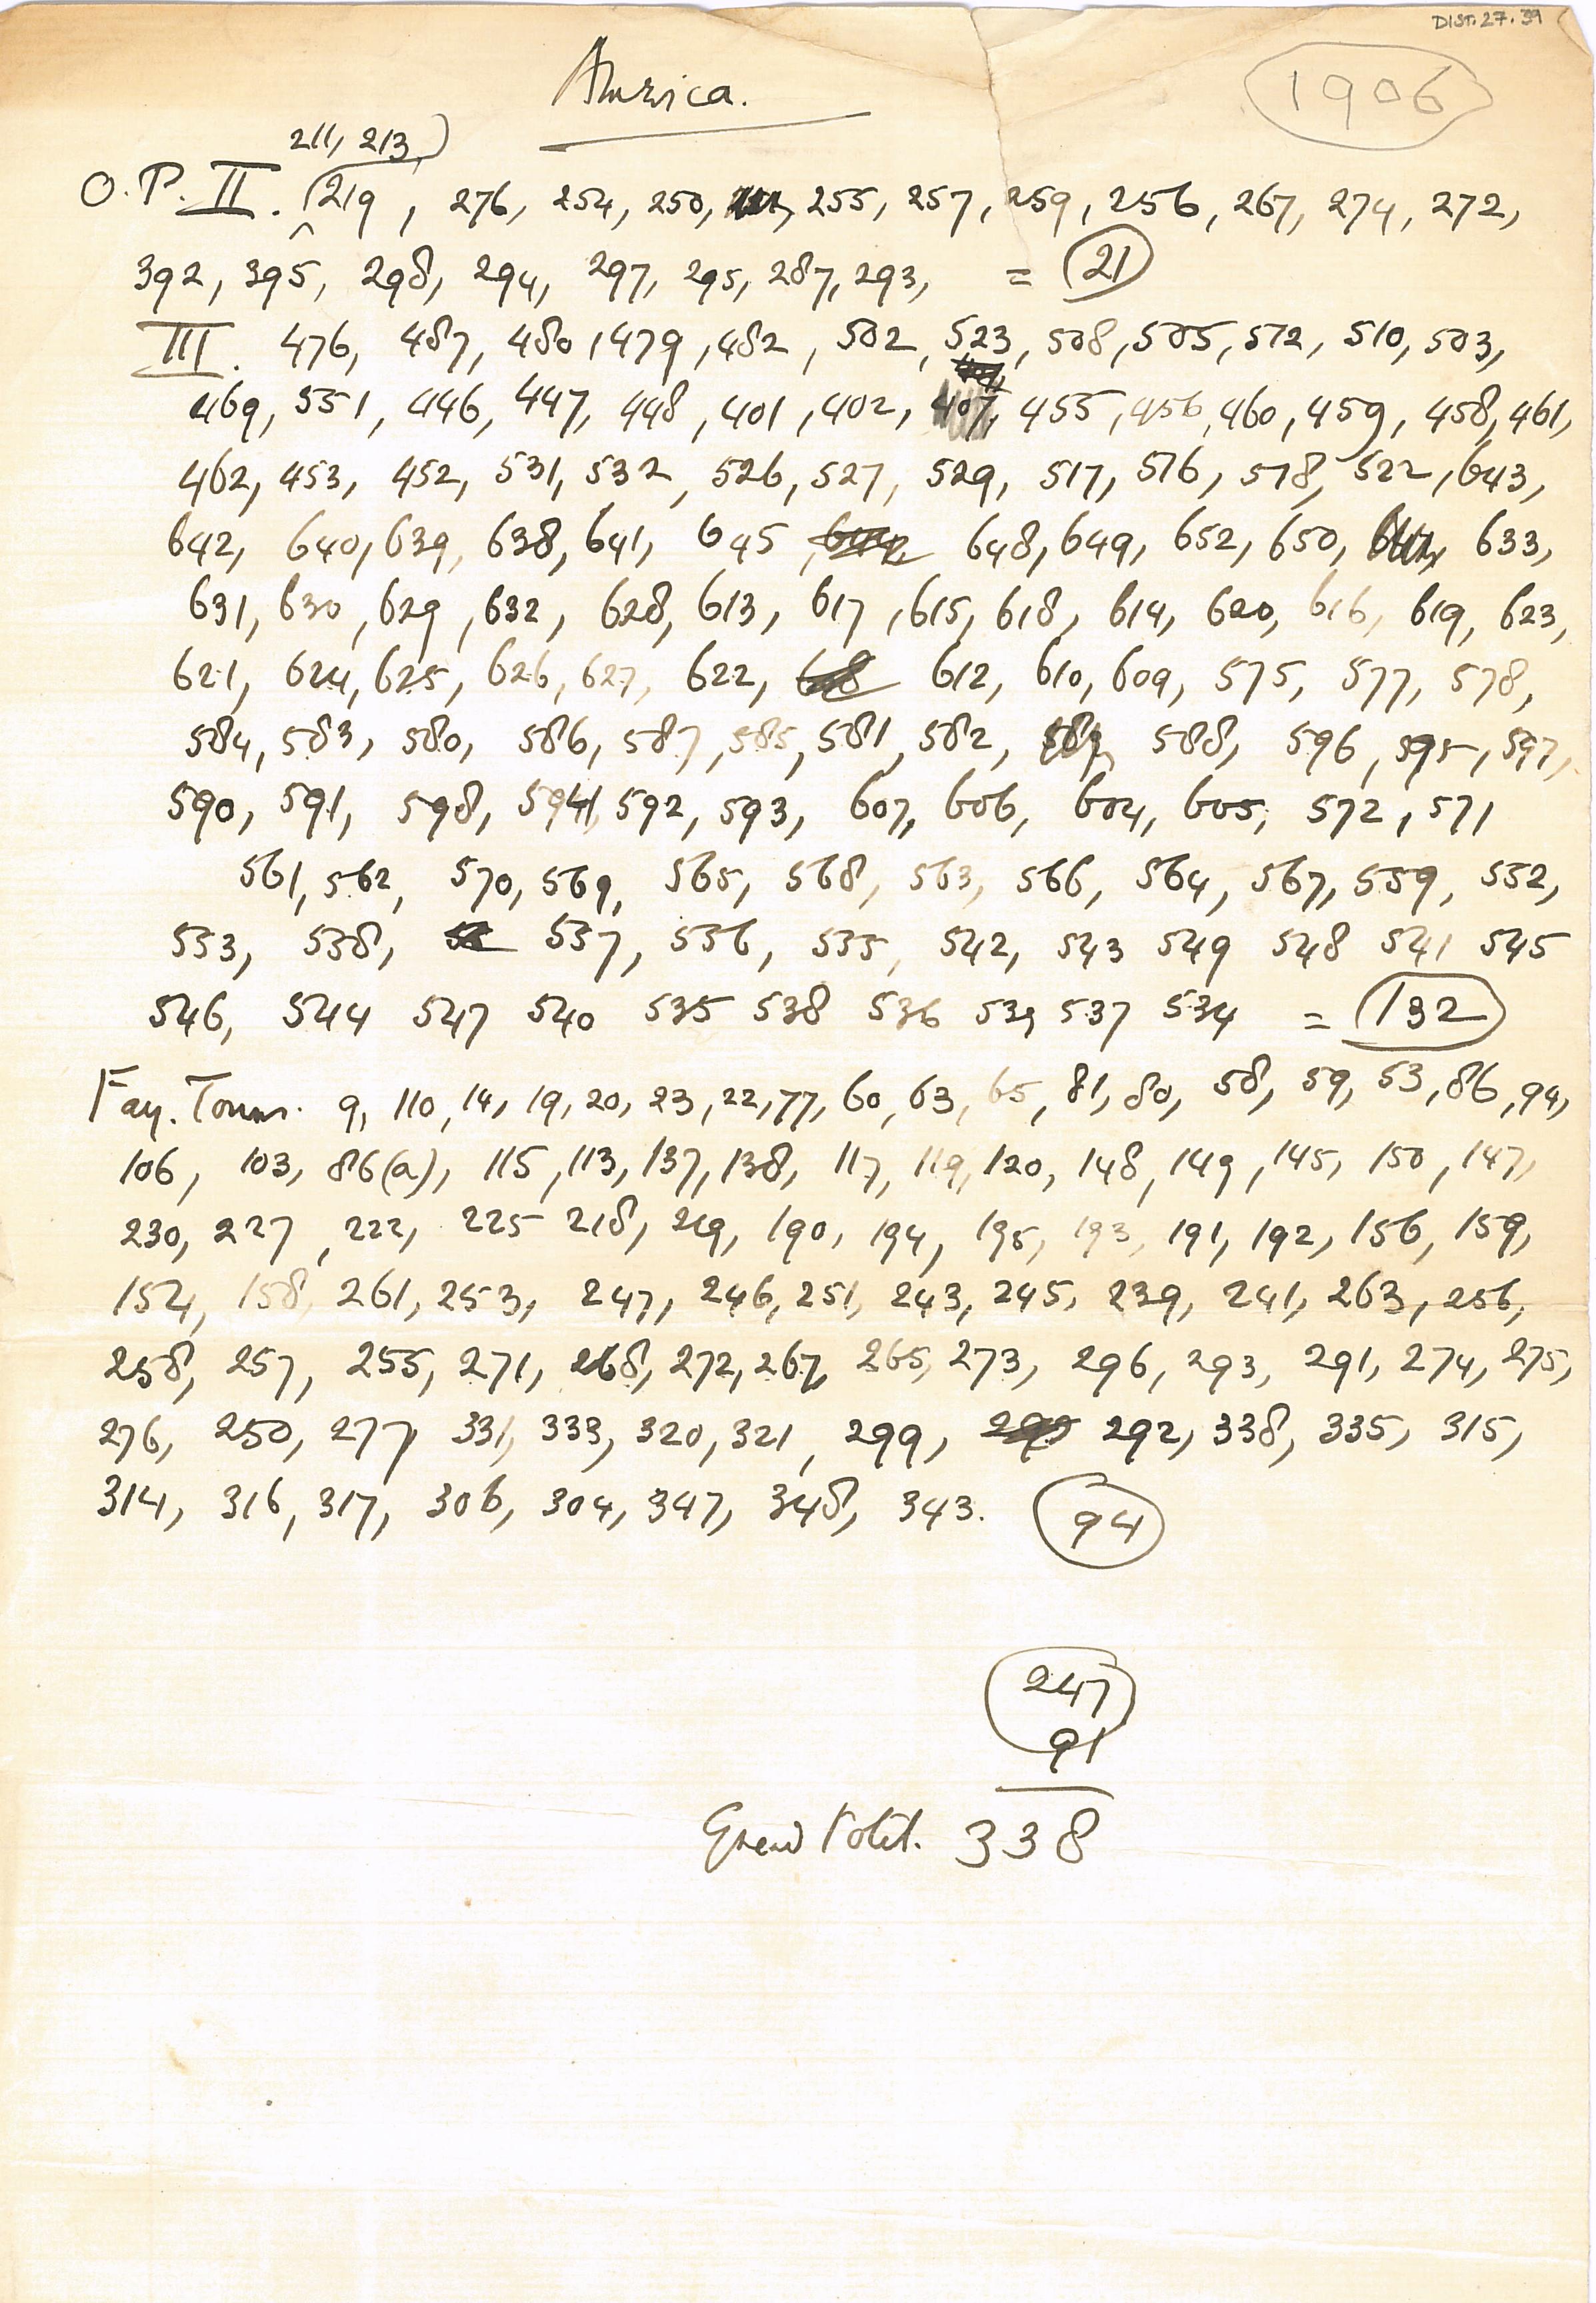 DIST.27.39
America.
1906
211, 213,)
O.P. II. (219, 276, 254, 250, 255, 257, 259, 256, 267, 274, 272,
392, 395, 298, 294, 297, 295, 287, 293, = 21
III. 476, 487, 480, 479, 482, 502, 523, 508, 505, 512, 510, 503,
469, 551, 446, 447, 448, 401, 402, 407, 455, 456, 460, 459, 458, 461,
462, 453, 452, 531, 532, 526, 527, 529, 517, 516, 518, 522, 643,
642, 640, 639, 638, 641, 645 648, 649, 652, 650, 633,
631, 630, 629, 632, 628, 613, 617, 615, 618, 614, 620, 616, 619, 623,
621, 624, 625, 626, 627, 622, 612, 610, 609, 575, 577, 578,
584, 583, 580, 586, 587, 585, 581, 582, 589, 588, 596, 595, 597,
590, 591, 598, 594, 592, 593, 607, 606, 604, 605, 572, 571
561, 562, 570, 569, 565, 568, 563, 566, 564, 567, 559, 552,
553, 558, 557, 556, 555, 542, 543 549 548 541 545
546, 544 547 540 535 538 536 539 537 534 = 132
Fay. Towns. 9, 110, 14, 19, 20, 23, 22, 77, 60, 63, 65, 81, 80, 58, 59, 53, 86, 94,
106, 103, 86(a), 115, 113, 137, 138, 117, 119, 120, 148, 149, 145, 150, 147,
230, 227, 222, 225 218, 219, 190, 194, 195, 193, 191, 192, 156, 159,
154, 158, 261, 253, 247, 246, 251, 243, 245, 239, 241, 263, 256,
258, 257, 255, 271, 268, 272, 267, 265, 273, 296, 293, 291, 274, 275,
276, 250, 277 331, 333, 320, 321, 299, 292, 338, 335, 315,
314, 316, 317, 306, 304, 347, 348, 343. 94
247
91
Grand Total. 338